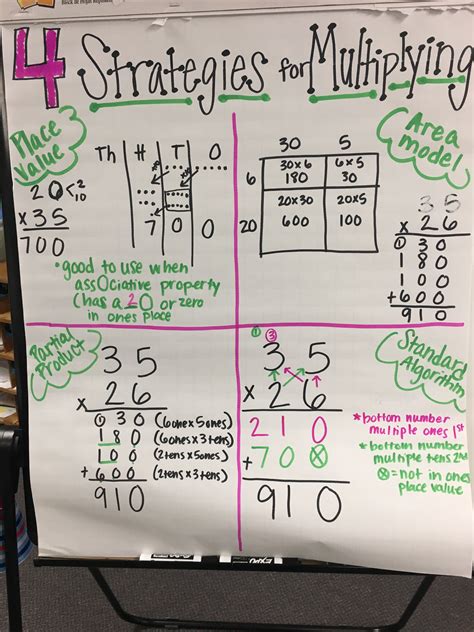 4 Strategies for Multiplying
Place
Value
20<2 10
x 35
700
Th H T O
7 0 0
• good to use when
assOciative property
(has a 20 or zero
in ones place
Area
model
30 5
6 30x6 6x5
180 30
20 20x30 20x5
600 100
35
x 26
① 30
180
100
+600
910
Partial
Product
35
x 26
030 (6ones x 5ones)
180 (6ones x 3tens)
100 (2tens x 5ones)
+ 600 (2tens x 3tens)
910
Standard
Algorithm
① ③
35
x 26
210
+ 70⊗
910
* bottom number
multiple ones 1st
* bottom number
multiple tens 2nd
⊗ = not in ones
place value